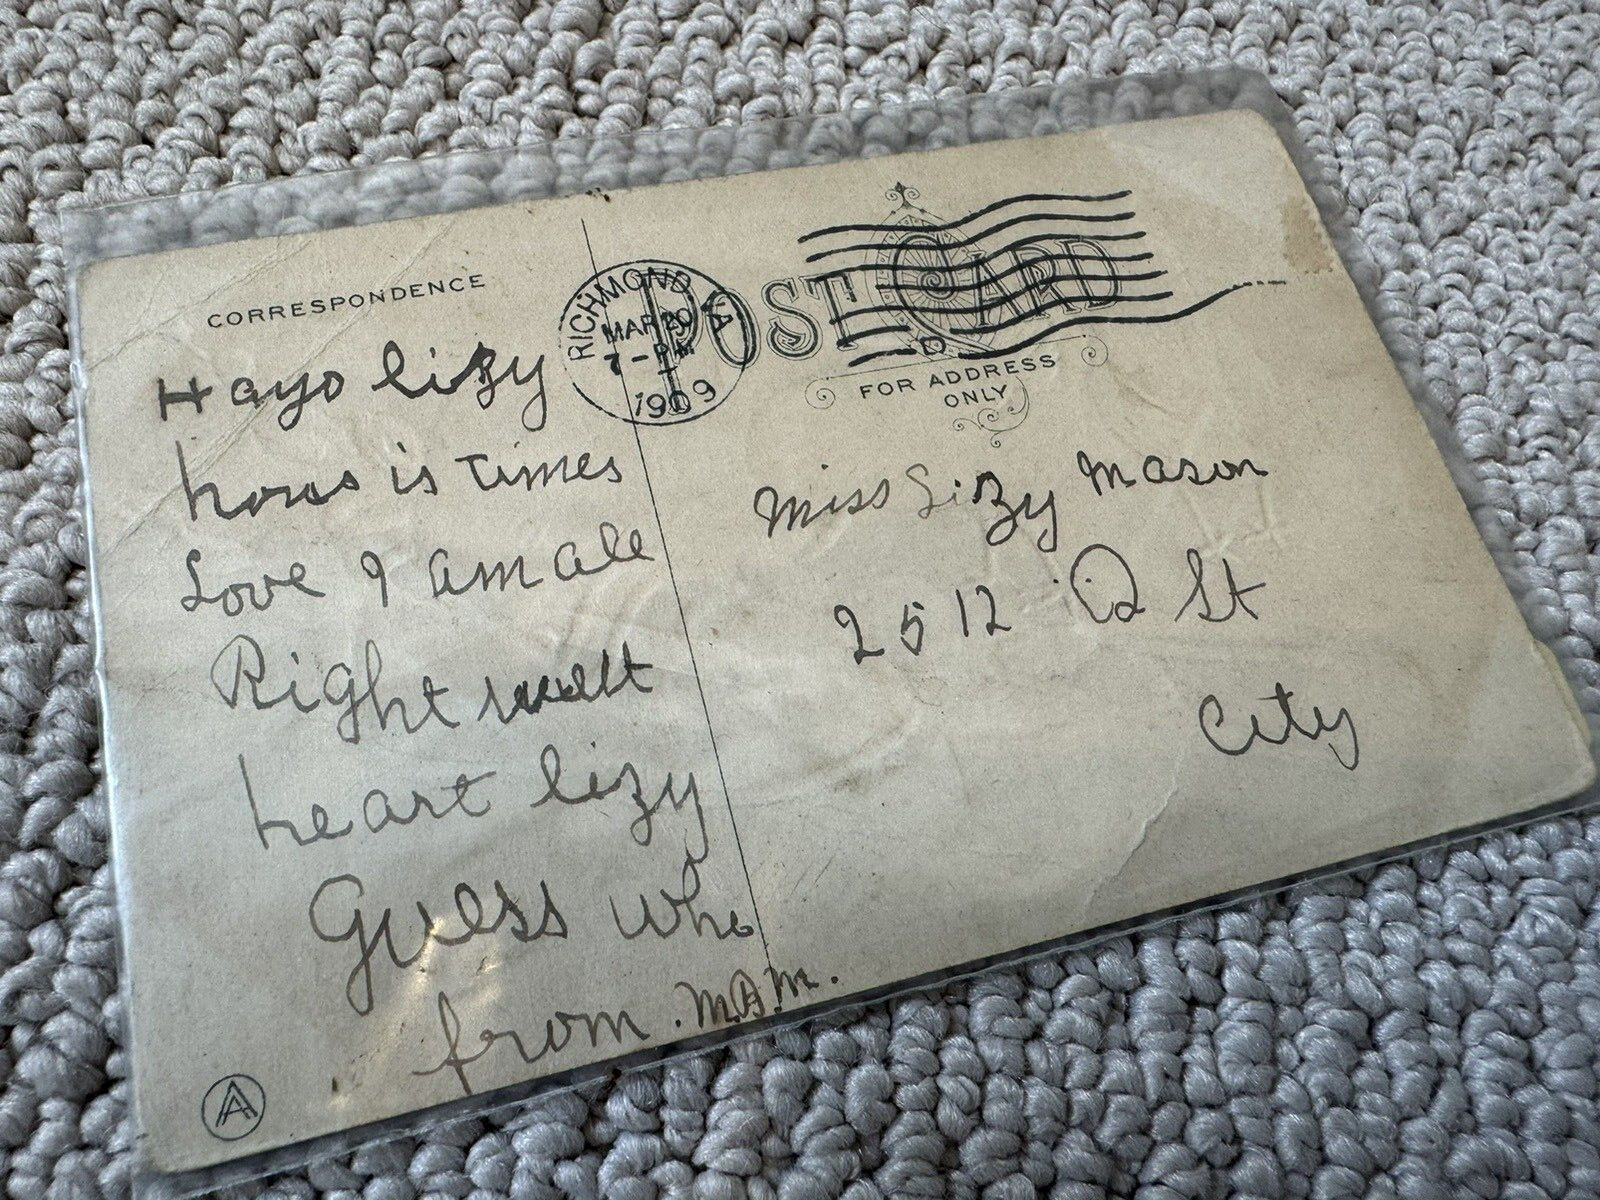 CORRESPONDENCE
POST CARD
FOR ADDRESS
ONLY
RICHMOND VA
MAR 20
7 - PM
1909
D
Hayo lizy
hows is times
Love I am ale
Right
heart lizy
Guess who
from. M.A.M.
Miss Lizy Mason
2512 Q St
City
A